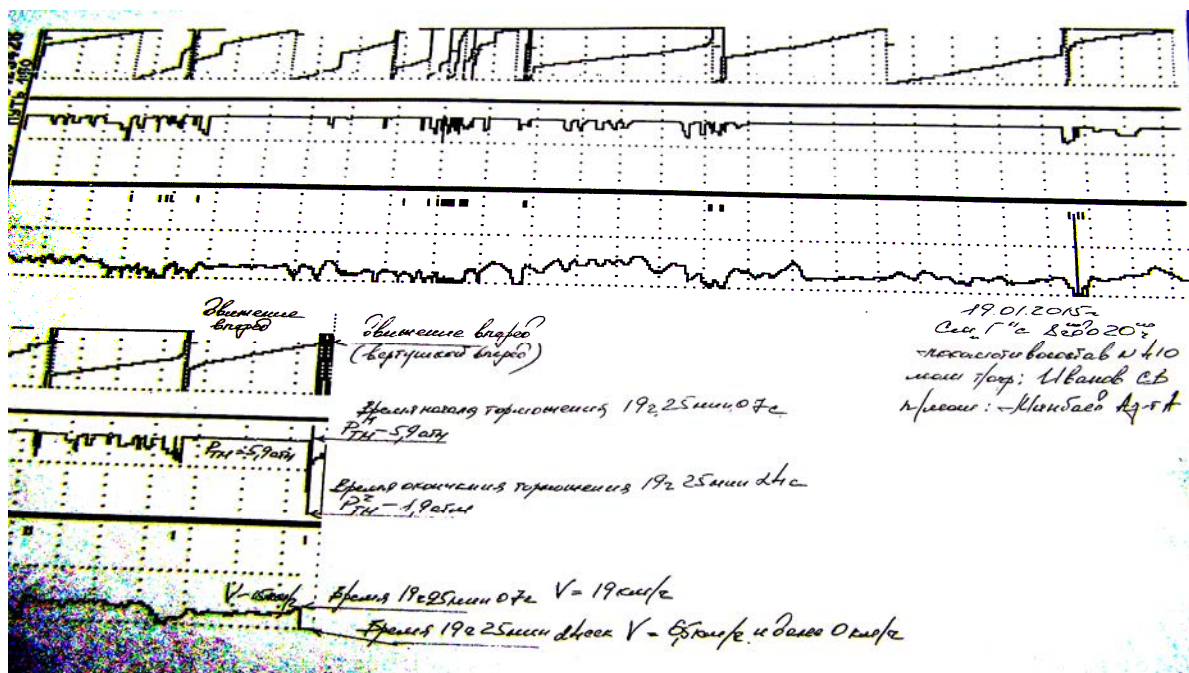 ПУТЬ
Движение
вперед
Движение вперед
(вертушкой вперед)
19.01.2015г
См "Г" с 8 до 20
локомотивосостав N 410
маш т/окр: Иванов СВ
п/маш:
Время начала торможения 19г 25мин 07с
Ртм - 5,9 атм
Ртм = 5,9 атм
Время окончания торможения 19г 25мин
Ртм - 1,9 атм
V - 15 км/г
Время 19г 25мин 07с V = 19 км/г
Время 19г 25мин V = 6,5 км/г и далее 0 км/г